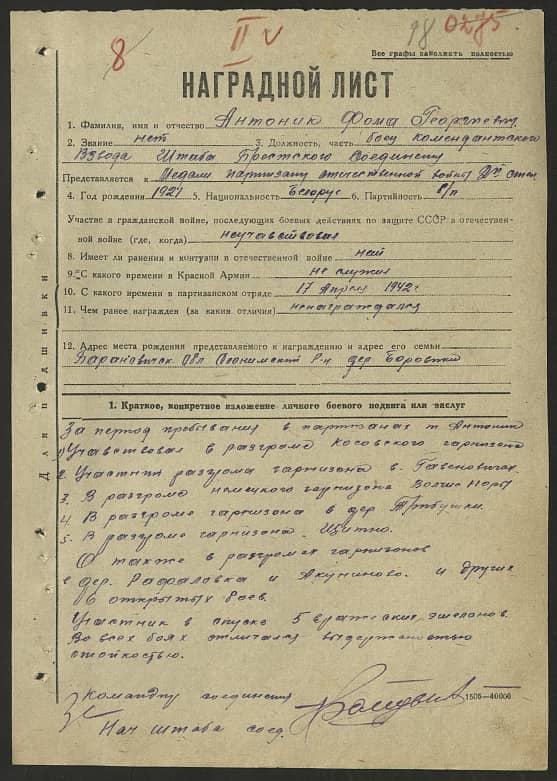 8
II v
98 0285
Все графы заполнять полностью
НАГРАДНОЙ ЛИСТ
1. Фамилия, имя и отчество Антоник Фома Георгиевич
2. Звание нет 3. Должность, часть боец комендантского
взвода Штаба Брестского Соединения
Представляется к Медали партизану отечественной войны II степ
4. Год рождения 1921 5. Национальность Белорус 6. Партийность б/п
Участие в гражданской войне, последующих боевых действиях по защите СССР и отечествен-
ной войне (где, когда) неучавствовал
8. Имеет ли ранения и контузии в отечественной войне нет
9. С какого времени в Красной Армии не служил
10. С какого времени в партизанском отряде 17 Апреля 1942 г
11. Чем ранее награжден (за какия отличия) ненаграждался
12. Адрес места рождения представляемого к награждению и адрес его семьи
Барановичск. Обл. Слонимский Р-н дер Боровики
Для подшивки
1. Краткое, конкретное изложение личного боевого подвига или заслуг
За период пребывания в партизанах т. Антоник
1) Учавствовал в разгроме Косовского гарнизона
2. Участник разгрома гарнизона в. Гавеновичах
3. В разгроме немецкого гарнизона Волчие Норы
4. В разгроме гарнизона в дер Трибушки
5. В разгроме гарнизона. Щитно.
А также в разгромах гарнизонов
в дер. Рафаловка и Акуниново. и других
6 открытых боев.
Участник в спуске 5 вражеских эшелонов.
Во всех боях отличался выдержаностью
стойкостью.
Командир соединения
1505—40000
Нач штаба соед.